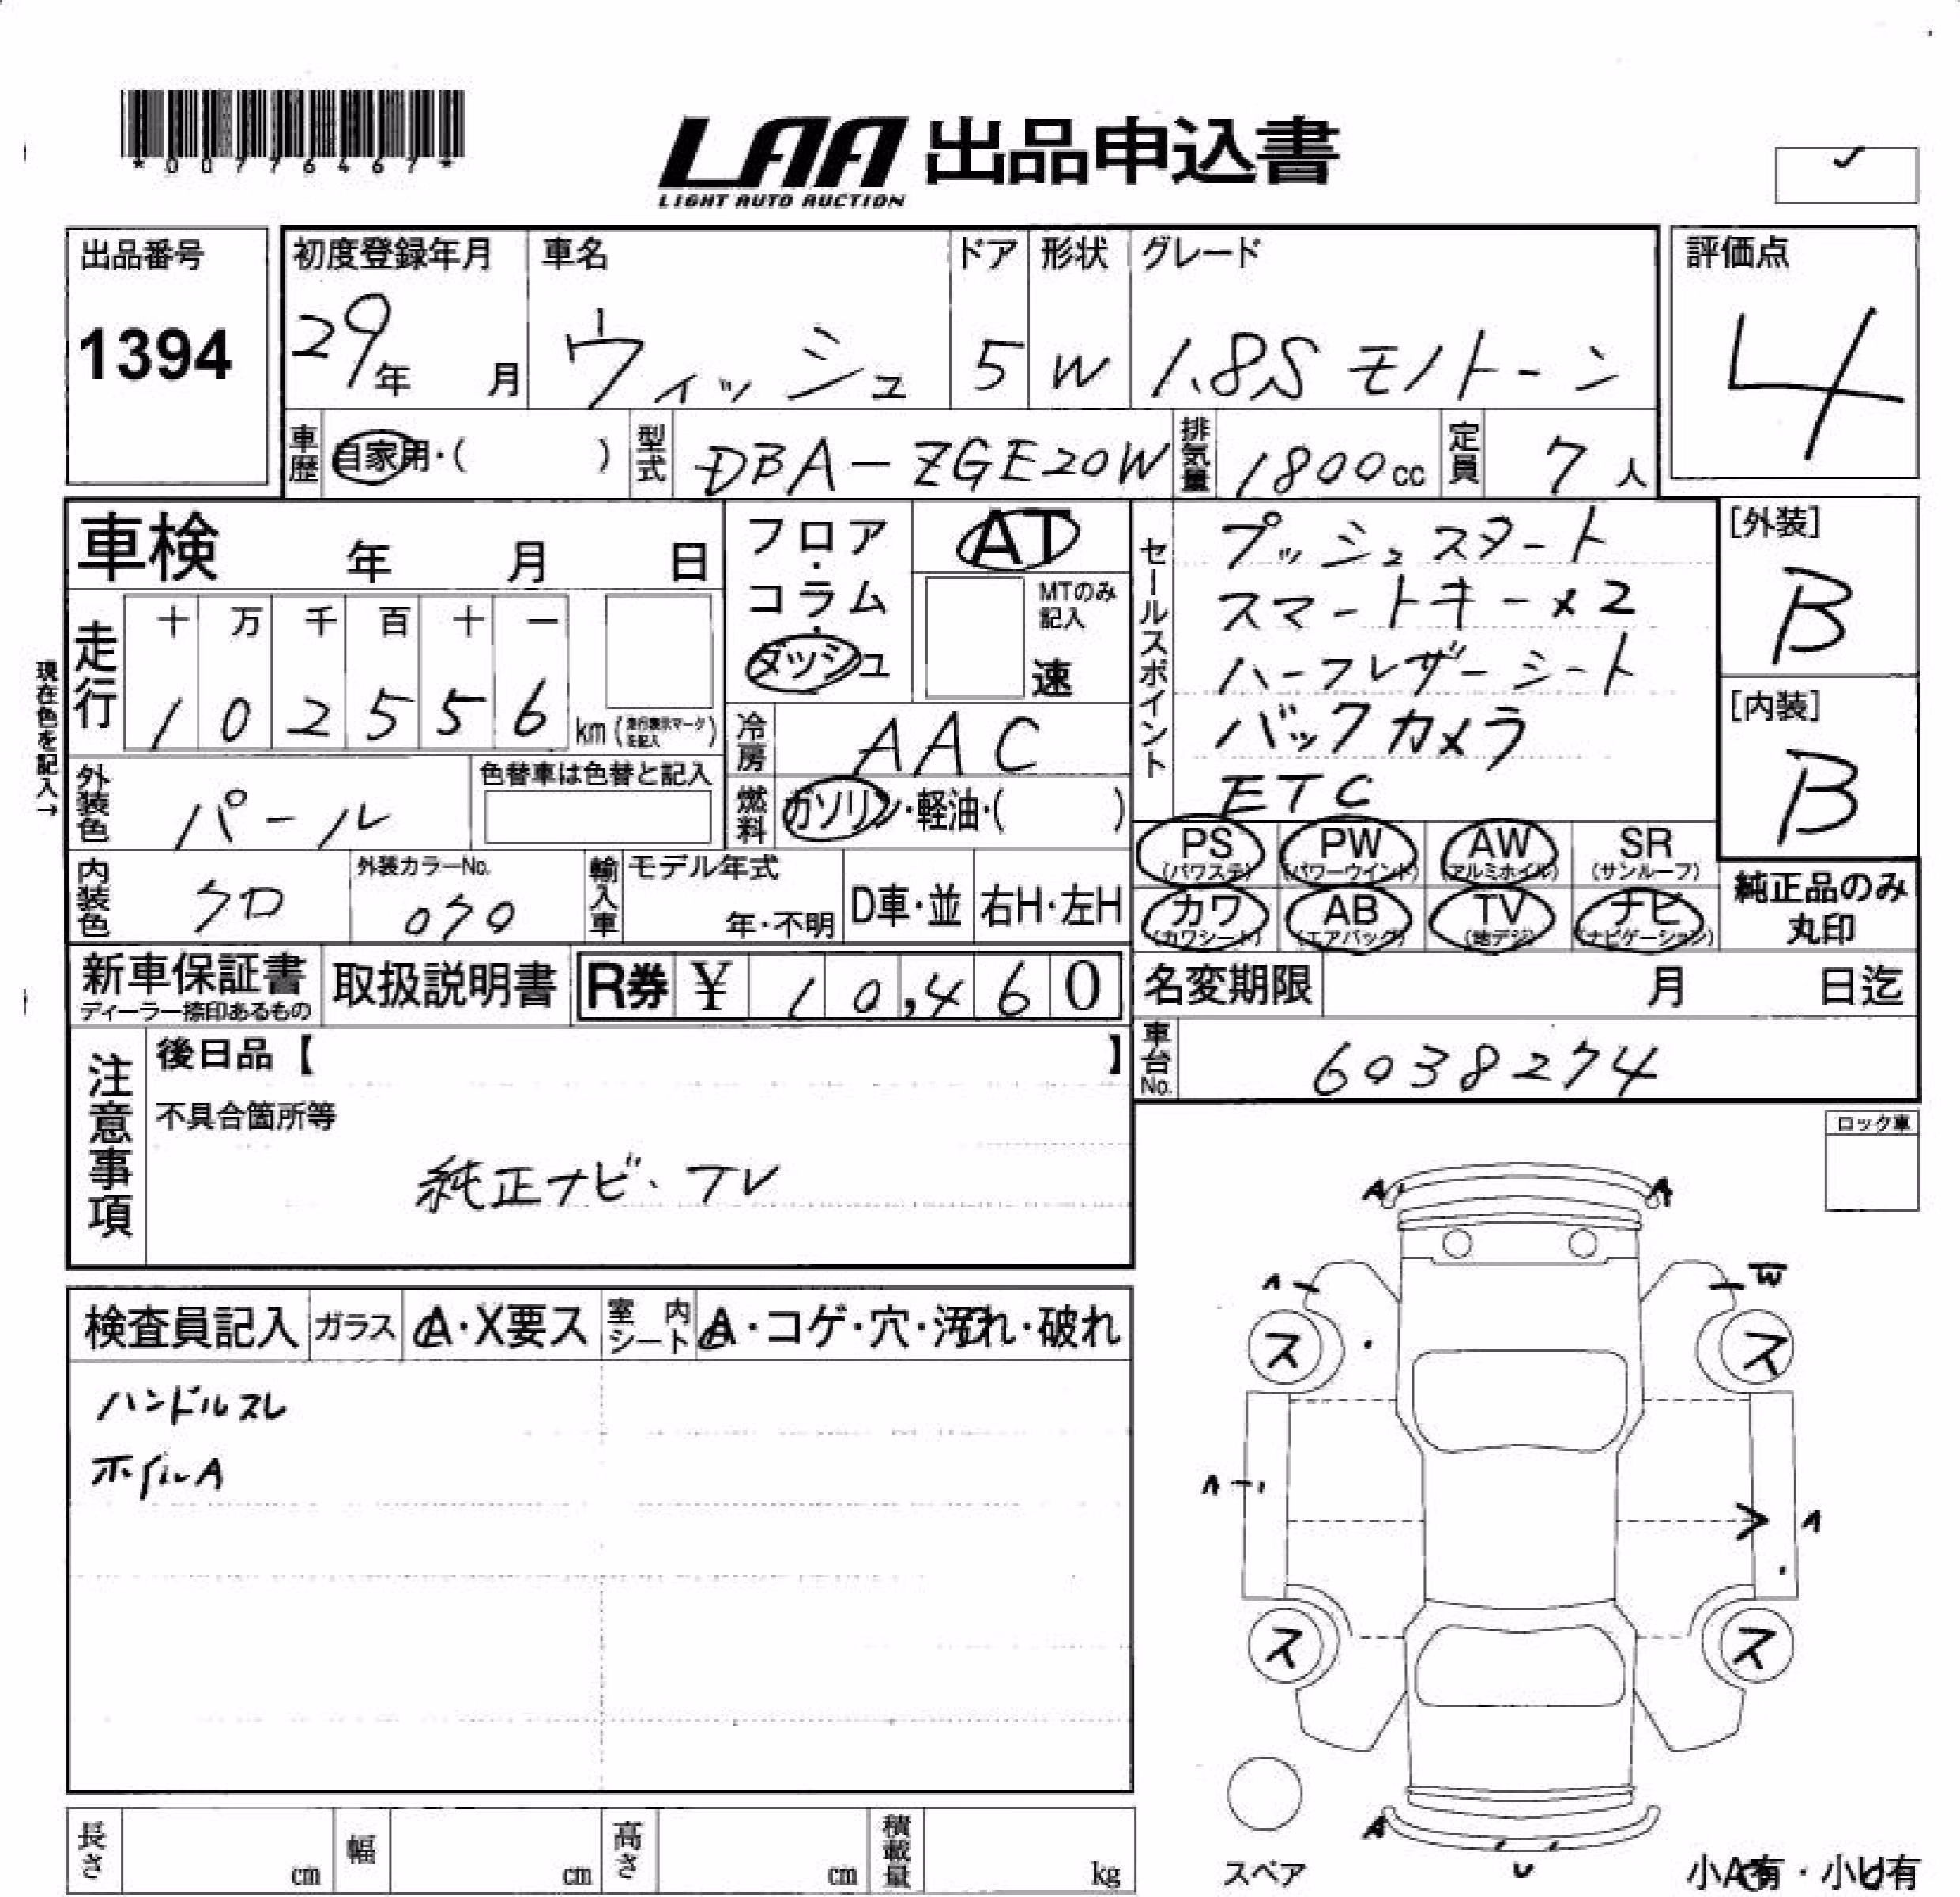 *00776467*
LAA 出品申込書
LIGHT AUTO AUCTION
✓
出品番号
1394
初度登録年月
29年 月
車名
ウィッシュ
ドア
5
形状
W
グレード
1.8S モノトーン
評価点
4
車歴 自家用・( )
型式 DBA-ZGE20W
排気量 1800cc
定員 7人
車検 年 月 日
現在色を記入→
走行
十 万 千 百 十 一
1 0 2 5 5 6 km
(走行表示マークを記入)
フロア・コラム・ダッシュ
AT
MTのみ記入
速
冷房 AAC
燃料 ガソリン・軽油・( )
セールスポイント
プッシュスタート
スマートキー×2
ハーフレザーシート
バックカメラ
ETC
[外装]
B
[内装]
B
外装色 パール
色替車は色替と記入
内装色 クロ
外装カラーNo.
070
輸入車
モデル年式
年・不明
D車・並
右H・左H
PS (パワステ)
PW (パワーウインド)
AW (アルミホイル)
SR (サンルーフ)
カワ (カワシート)
AB (エアバッグ)
TV (地デジ)
ナビ (ナビゲーション)
純正品のみ丸印
新車保証書
ディーラー捺印あるもの
取扱説明書
R券 ¥ 10,460
名変期限 月 日迄
車台No. 6038274
注意事項
後日品【 】
不具合箇所等
純正ナビ、TV
ロック車
検査員記入
ガラス A・X要ス
室内シート A・コゲ・穴・汚れ・破れ
ハンドルスレ
ホイルA
A A
A W
ス ス
A A
ス ス
A
U
スペア
小A有・小U有
長さ cm
幅 cm
高さ cm
積載量 kg